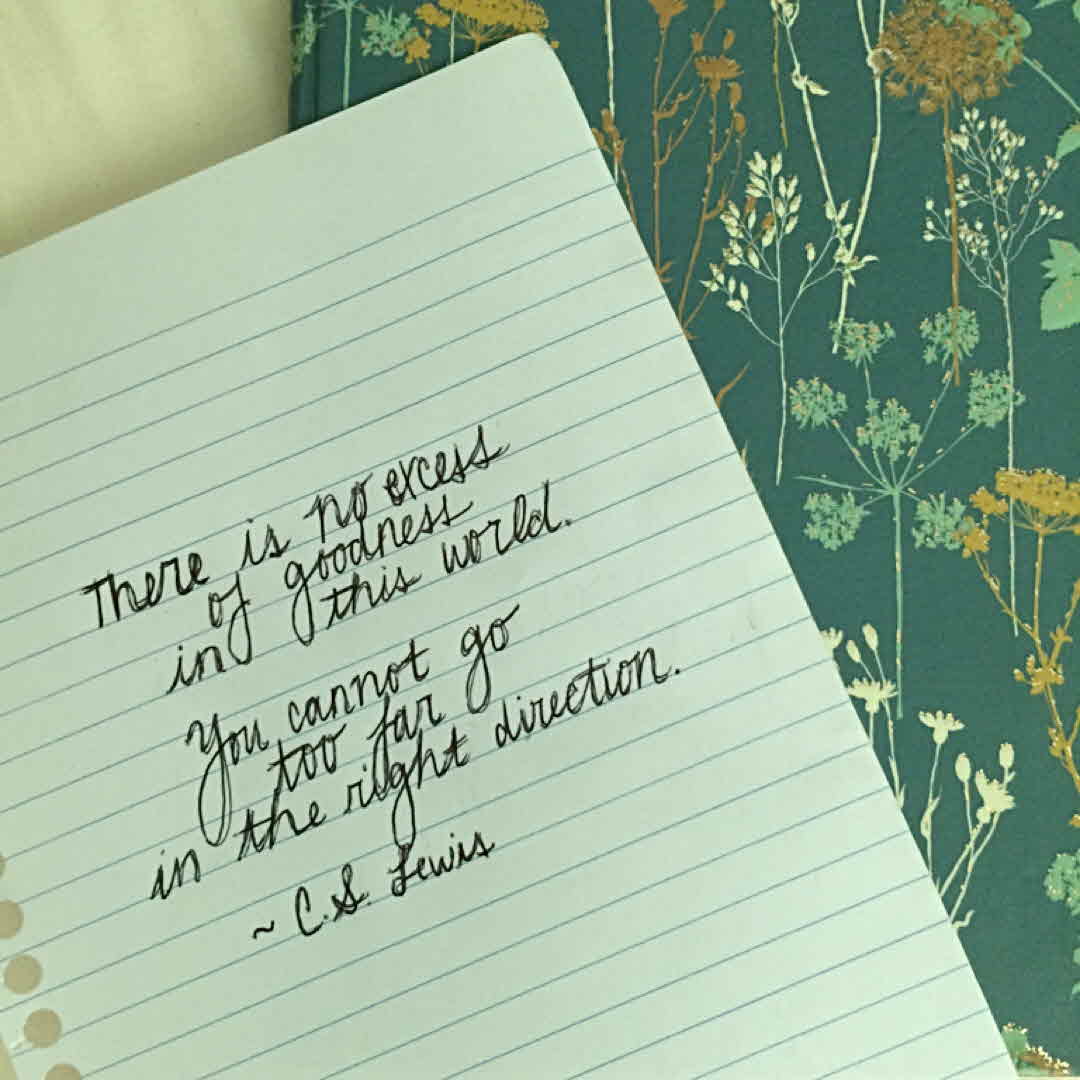 There is no excess
of goodness
in this world.
You cannot go
too far go
in the right direction.
~ C.S. Lewis